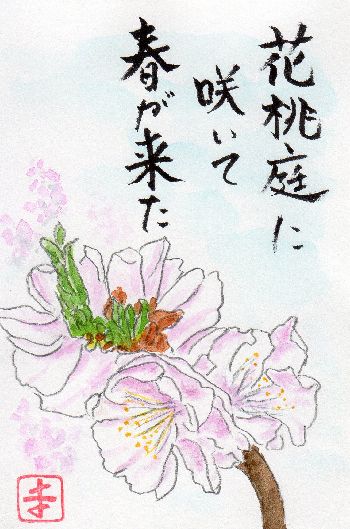 花桃庭に
咲いて
春が来た